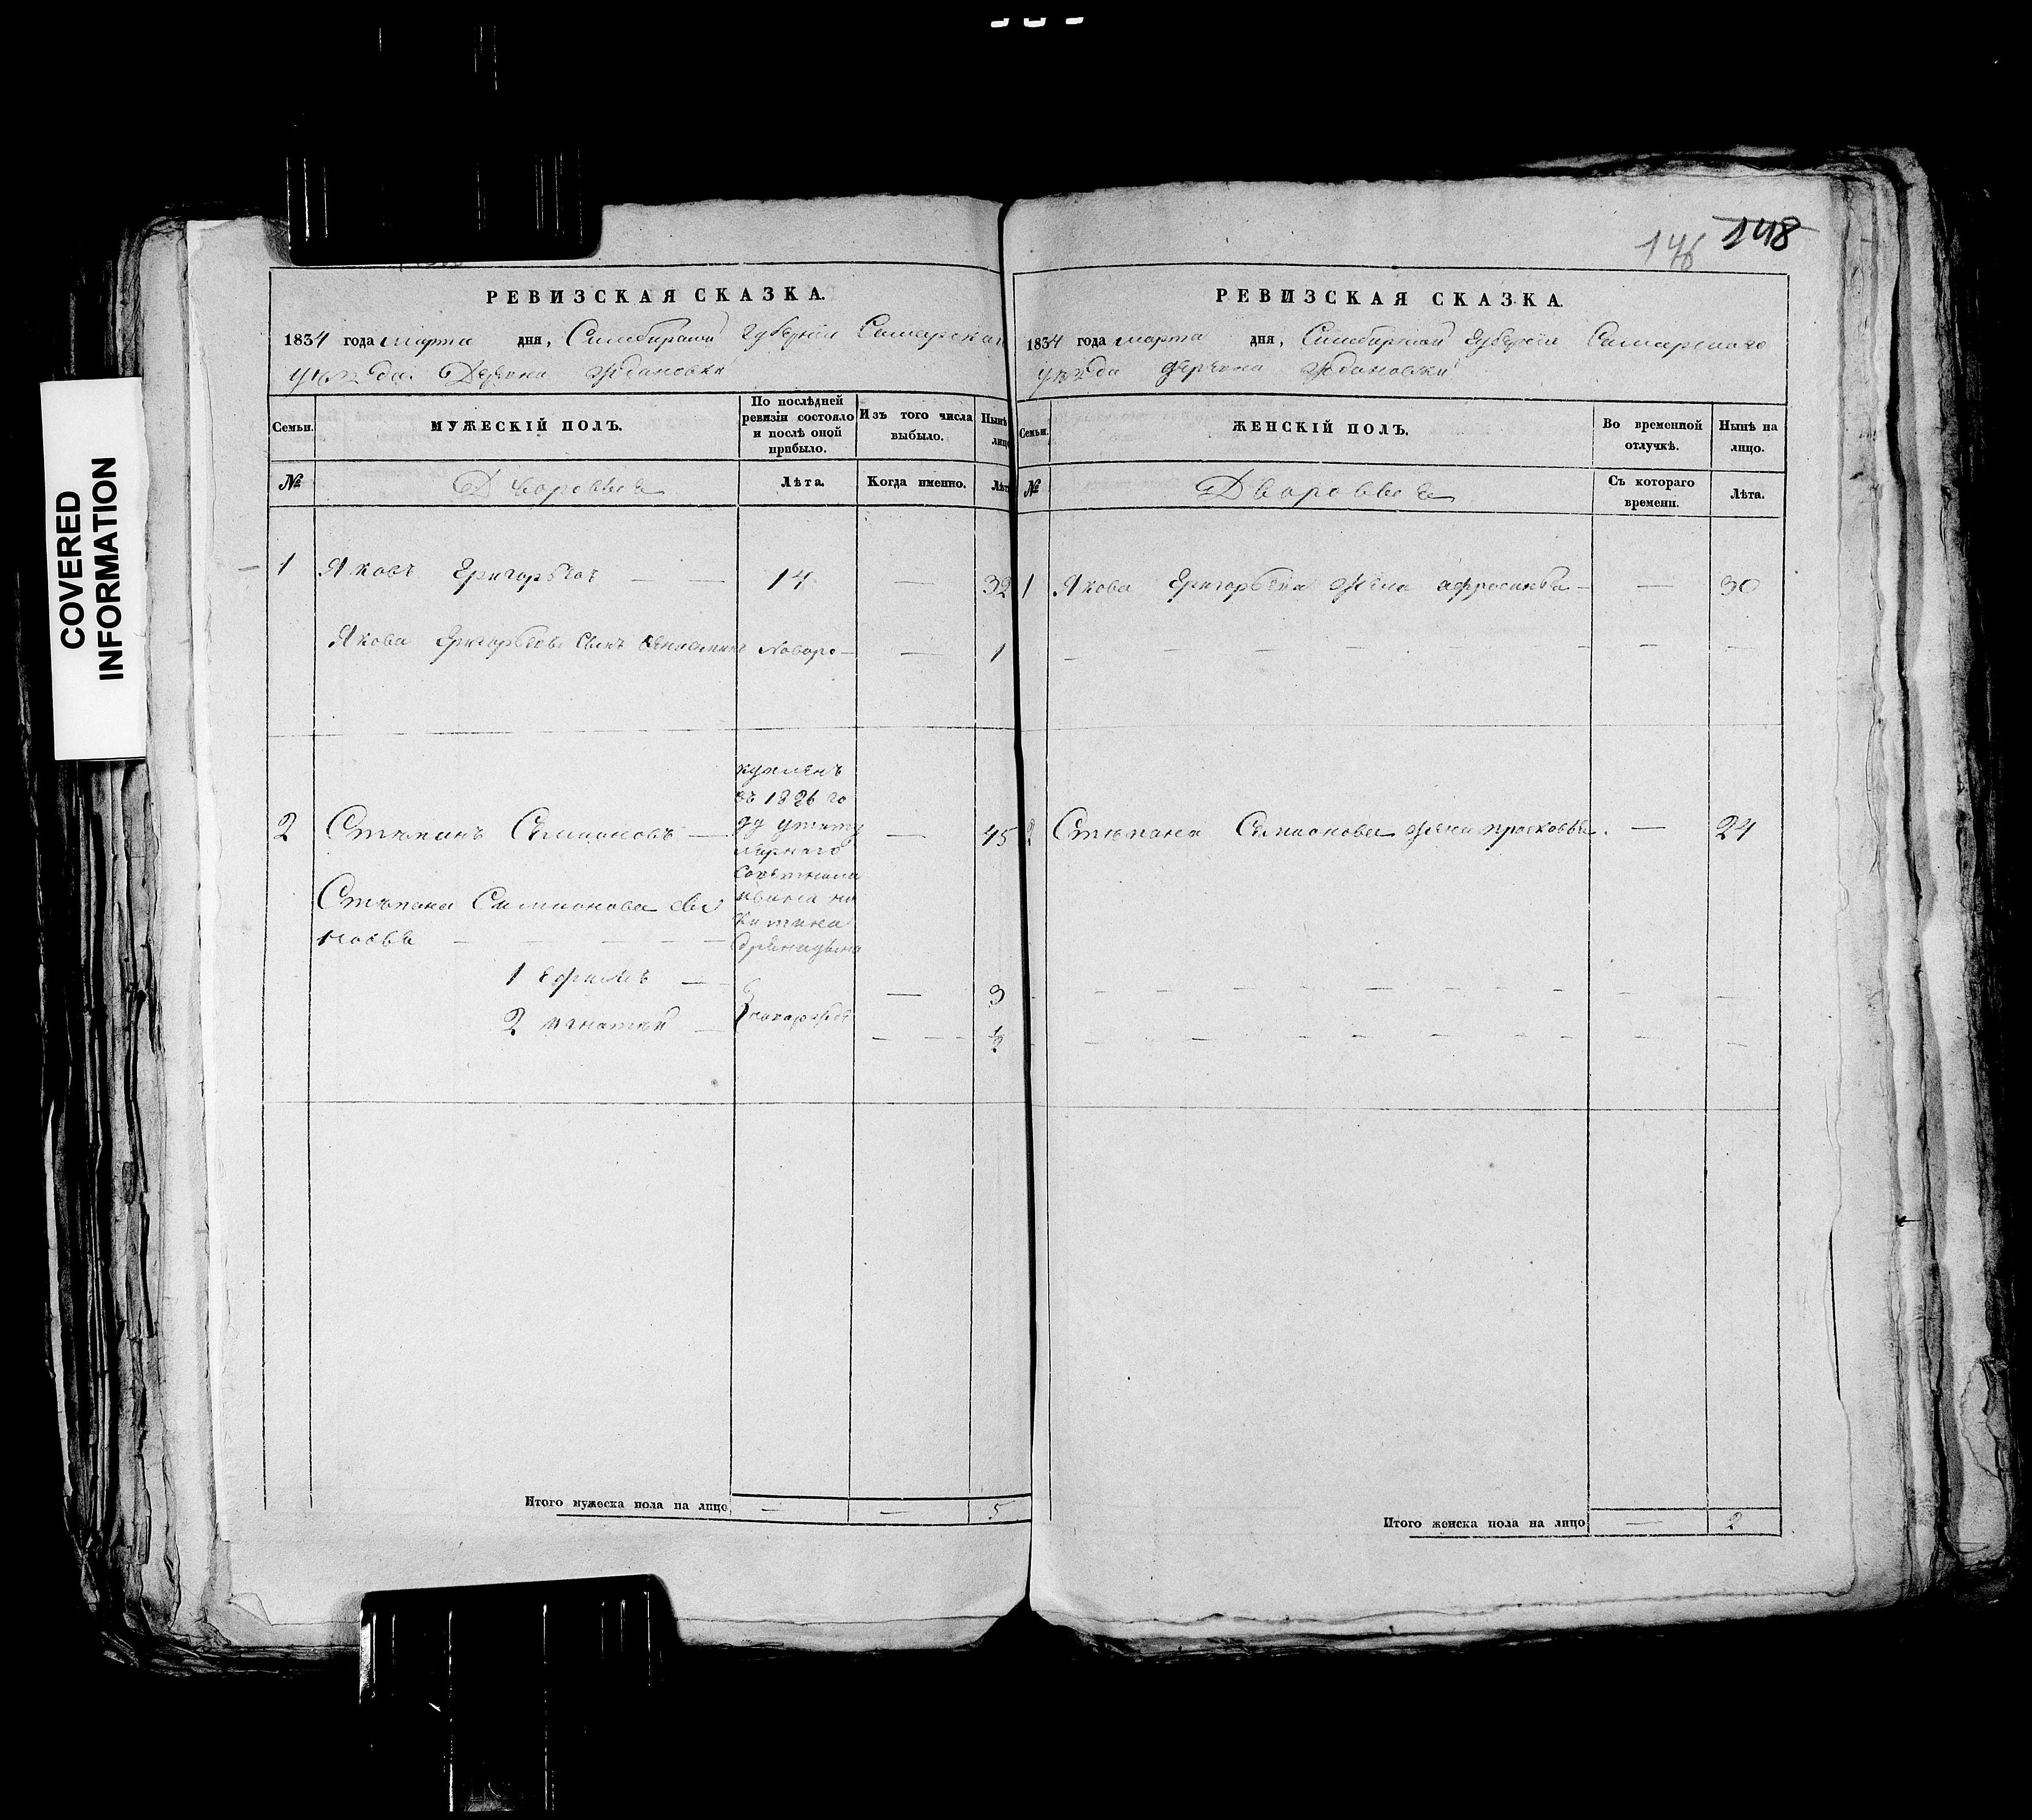 COVERED
INFORMATION
146 148
РЕВИЗСКАЯ СКАЗКА.
1834 года марта дня, Симбирской губернии Самарскаго
уѣзда Деревни Ждановки
Семьи.
МУЖЕСКІЙ ПОЛЪ.
По послѣдней
ревизіи состояло
и послѣ оной
прибыло.
Изъ того числа
выбыло.
Нынѣ
лицо
№
Дворовыя
Лѣта.
Когда именно.
Лѣт
1 Яковъ Григорьевъ — — 14 — 32
Якова Григорьева сынъ новоро — — 1
2 Степанъ Симионовъ — — 45
купленъ
въ 1826 го
ду у титу
лярнаго
советника
ивана ни
китина
Степана Симионова сы
новья — — — — —
1 ефимъ — — 3
2 игнатей — новорожде — — 1/2
Итого мужеска пола на лицо — — 5
РЕВИЗСКАЯ СКАЗКА.
1834 года марта дня, Симбирской Губернии Самарскаго
уѣзда деревни Ждановки
Семьи.
ЖЕНСКІЙ ПОЛЪ.
Во временной
отлучкѣ.
Нынѣ на
лицо.
№
Дворовыя
Съ котораго
времени.
Лѣта.
1 Якова Григорьева жена афросинья — — 30
2 Степана Симионова жена прасковья. — 24
Итого женска пола на лицо — 2